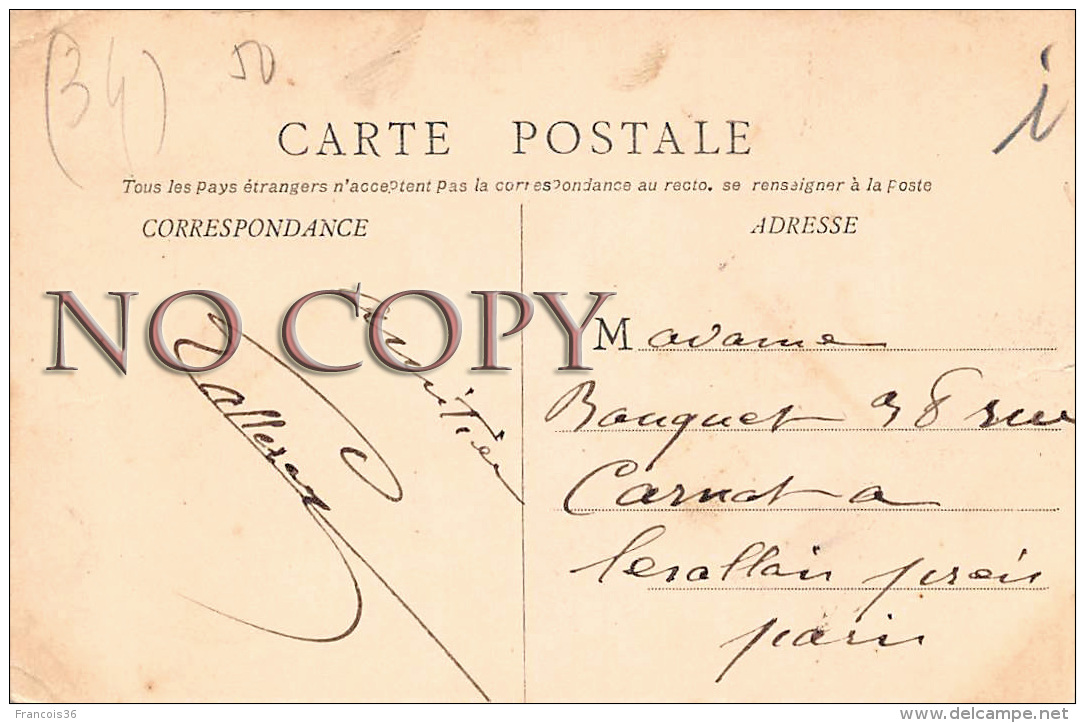 (34) 50 i
CARTE POSTALE
Tous les pays étrangers n'acceptent pas la correspondance au recto. se renseigner à la poste
CORRESPONDANCE
ADRESSE
NO COPY
Madame
Bouquet 38 rue
Carnot a
près
paris
Francois36
www.delcampe.net